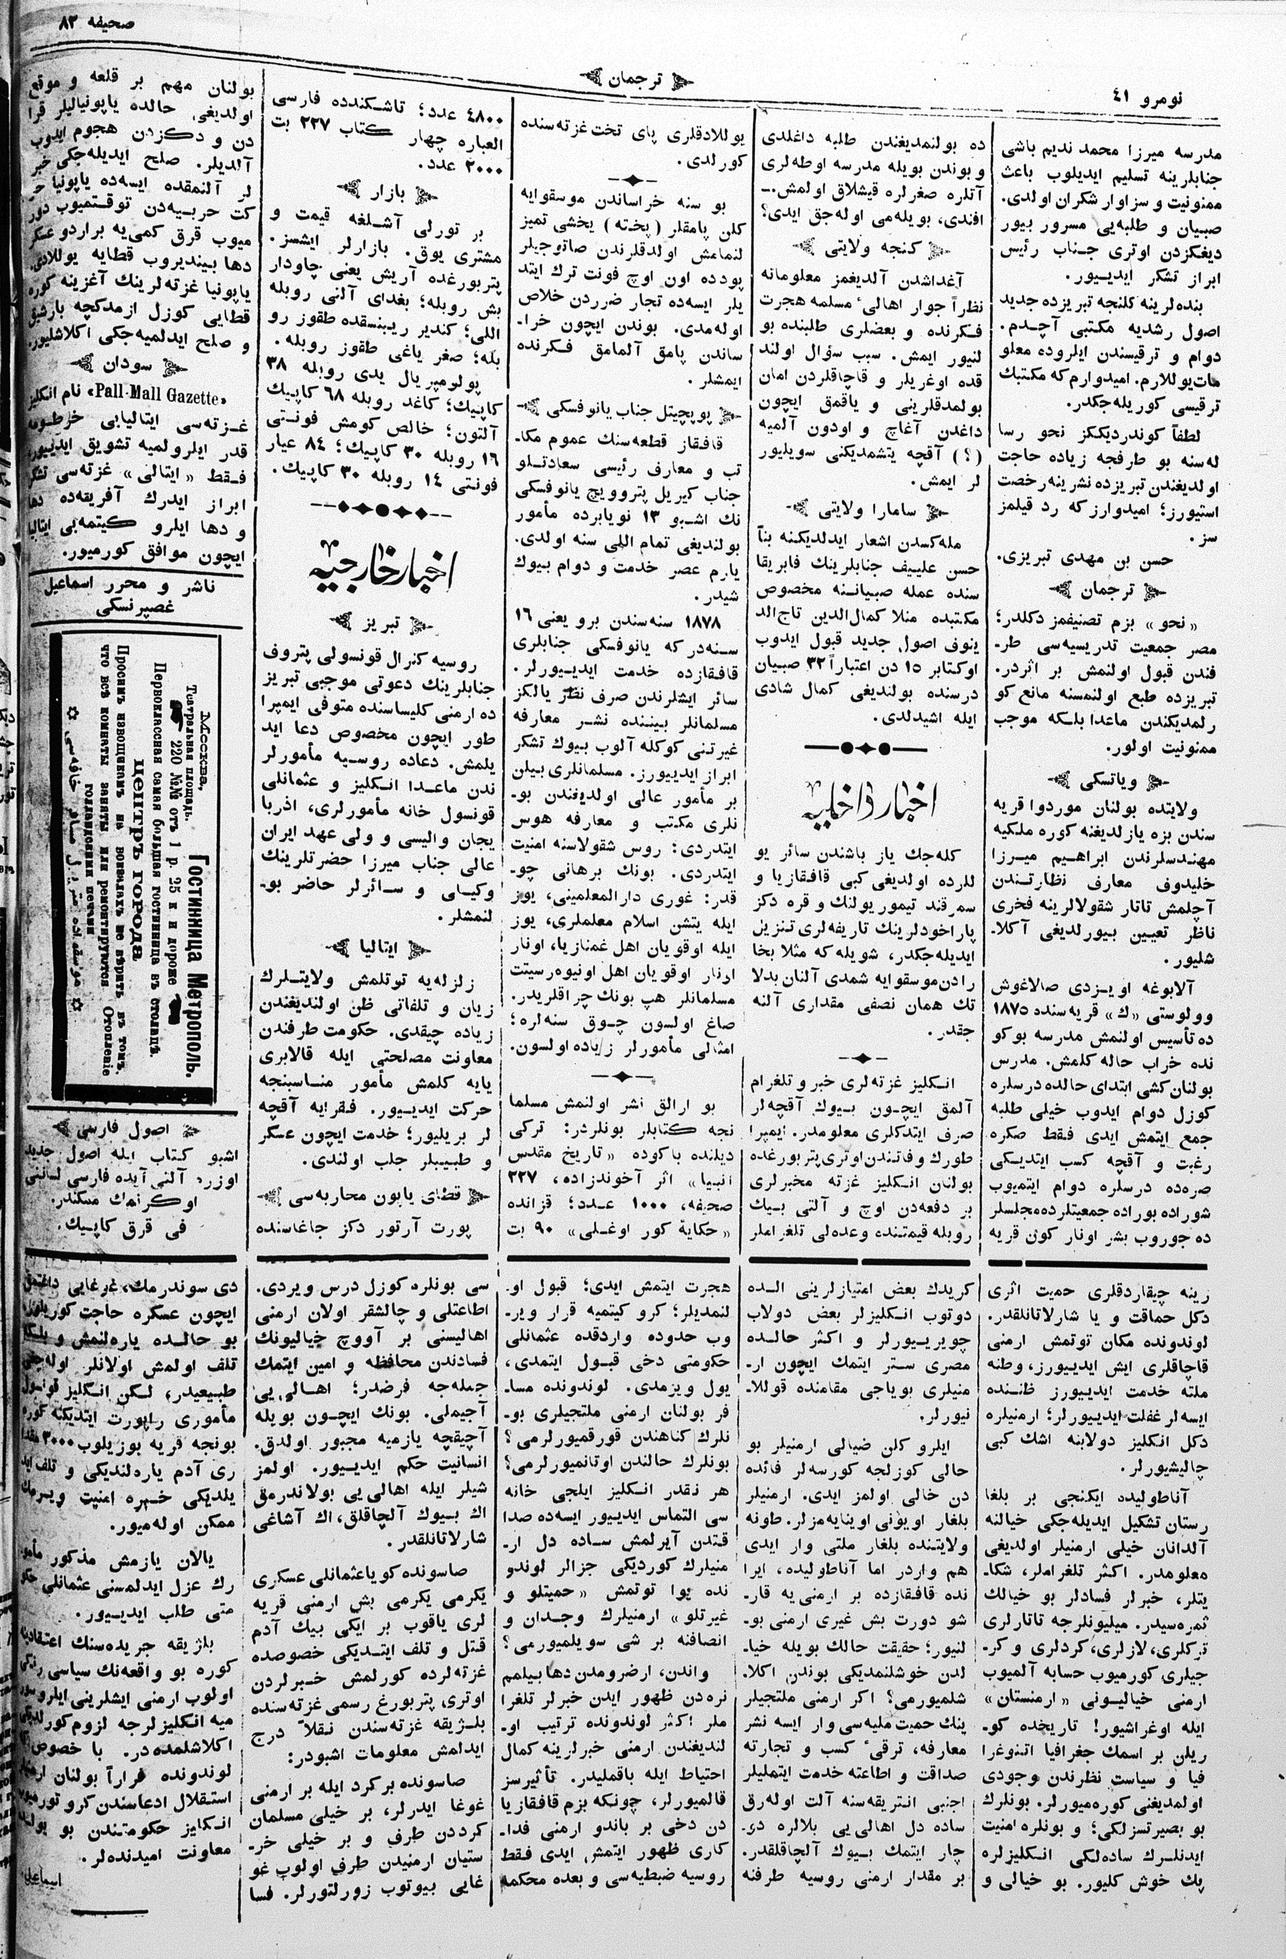 نومرو ٤١
ترجمان
صحيفه ٨٣
مدرسه ميرزا محمد نديم باشى
جنابلرينه تسليم ايديلوب باعث
ممنونيت و سزاوار شكران اولدى.
صبيان و طلبه‌يى مسرور بيور
ديغكزدن اوترى جناب رئيس
ابراز تشكر ايديیور.
بنده‌لرينه كلنجه تبريزده جديد
اصول رشديه مكتبى آچدم.
دوام و ترقيسندن ايلروده معلو
مات يوللارم. اميدوارم كه مكتبك
ترقيسى كوريله‌جكدر.
لطفاً كوندرديككز نحو رسا
له‌سنه بو طرفجه زياده حاجت
اولديغندن تبريزده نشرينه رخصت
استيورز؛ اميدوارز كه رد قيلمز
سز.
حسن بن مهدى تبريزى.
ترجمان
«نحو» بزم تصنيفمز دكلدر؛
مصر جمعيت تدريسيه‌سى طر-
فندن قبول اولنمش بر اثردر.
تبريزده طبع اولنمسنه مانع كو
رلمديكندن ماعدا بلكه موجب
ممنونيت اولور.
وياتسكى
ولايتده بولنان موردوا قريه
سندن بزه يازلديغنه كوره ملكيه
مهندسلرندن ابراهيم ميرزا
خليدوف معارف نظارتندن
آچلمش تاتار شقولالرينه فخرى
ناظر تعيين بيورلديغى آكلا-
شليور.
آلابوغه اويزدى صالاغوش
وولوستى «ك» قريه سنده ١٨٧٥
ده تأسيس اولنمش مدرسه بوكو
نده خراب حاله كلمش. مدرس
بولنان كشى ابتداى حالده درسلره
كوزل دوام ايدوب خيلى طلبه
جمع ايتمش ايدى فقط صكره
رغبت و آقچه كسب ايتديكى
صره‌ده درسلره دوام ايتميوب
شوراده بوراده جمعيتلرده مجلسلر
ده جوروب بشر اونار كون قريه
ده بولنمديغندن طلبه داغلدى
و بوندن بويله مدرسه اوطه‌لرى
آتلره صغرلره قيشلاق اولمش.
افندى، بويله‌مى اوله‌جق ايدى؟
كنجه ولايتى
آغداشدن آلديغمز معلوماته
نظراً جوار اهالىٴ مسلمه هجرت
فكرنده و بعضلرى طلبنده بو
لنيور ايمش. سبب سؤال اولند
قده اوغريلر و قاچاقلردن امان
بولمدقلرينى و ياقمق ايچون
داغدن آغاچ و اودون آلميه
(؟) آقچه يتشمديكنى سويليور
لر ايمش.
سامارا ولايتى
مله‌كسدن اشعار ايدلديكنه بناً
حسن علييف جنابلرينك فابريقا
سنده عمله صبيانـنه مخصوص
مكتبده منلا كمال‌الدين تاج‌الد
ينوف اصول جديد قبول ايدوب
اوكتابر ١٥ دن اعتباراً ٣٢ صبيان
درسنده بولنديغى كمال شادى
ايله اشيدلدى.
اخبار داخليه
كله‌جك ياز باشندن سائر يو
للرده اولديغى كبى قافقازيا و
سمرقند تيموريولنك و قره دكز
پاراخودلرينك تاريفه‌لرى تنزيل
ايديله‌جكدر، شويله كه مثلا بخا
رادن موسقوايه شمدى آلنان بدلا
تك همان نصفى مقدارى آلنه
جقدر.
انكليز غزته‌لرى خبر و تلغرام
آلمق ايچـون بيوك آقچه‌لر
صرف ايتدكلرى معلومدر. ايمپرا
طورك وفاتندن اوترى پتربورغده
بولنان انكليز غزته مخبرلرى
بر دفعه‌دن اوچ و آلتى بيك
روبله قيمتنده وعده‌لى تلغراملر
يوللادقلرى پاى تخت غزته‌سنده
كورلدى.
بو سنه خراساندن موسقوايه
كلن پامقلر (پخته) يخشى تميز
لنمامش اولدقلرندن صاتوجيلر
پودده اون اوچ فونت ترك ايتد
يلر ايسه‌ده تجار ضرردن خلاص
اوله‌مدى. بوندن ايچون خرا-
ساندن پامق آلمامق فكرنده
ايمشلر.
پوپچيتل جناب يانوفسكى
قافقاز قطعه‌سنك عموم مكا-
تب و معارف رئيسى سعادتـلو
جناب كيريل پتروويچ يانوفسكى
نك اشبو ١٣ نويابرده مأمور
بولنديغى تمام اللى سنه اولدى.
يارم عصر خدمت و دوام بيوك
شيدر.
١٨٧٨ سنه سندن برو يعنى ١٦
سنه‌در كه يانوفسكى جنابلرى
قافقازده خدمت ايديـيورلر.
سائر ايشلرندن صرف نظر يالكز
مسلمانلر بيننده نشر معارفه
غيرتنى كوكله آلوب بيوك تشكر
ابراز ايديـيورز. مسلمانلرى بيلن
بر مأمور عالى اولديغندن بو-
نلرى مكتب و معارفه هوس
ايتدردى: روس شقولاسنه امنيت
ايتدردى. بونك برهانى چو-
قدر: غورى دارالمعلمينى، يوز
ايله يتشن اسلام معلملرى، يوز
ايله اوقويان اهل غمنازيا، اونار
اونار اوقويان اهل اونيوەرسيتت
مسلمانلر هپ بونك چراقلريدر.
صاغ اولسون چوق سنه‌لره؛
امثالى مأمورلر زياده اولسون.
بو ارالق نشر اولنمش مسلما
نجه كتابلر بونلردر: تركى
ديلنده باكوده «تاريخ مقدس
انبيا» اثر آخوندزاده، ٢٢٧
صحيفه، ١٠٠٠ عدد؛ قزانده
«حكاية كور اوغلى» ٩٠ بت
٤٨٠٠ عدد؛ تاشكندده فارسى
العباره چهار كتاب ٢٢٧ بت
٢٠٠٠ عدد.
بازار
بر تورلى آشلغه قيمت و
مشترى يوق. بازارلر ايشسز.
پتربورغده آريش يعنى چاودار
بش روبله؛ بغداى آلتى روبله
اللى؛ كندير ريبنسقده طقوز رو
بله؛ صغر ياغى طقوز روبله.
پولومپريال يدى روبله ٣٨
كاپيك؛ كاغد روبله ٦٨ كاپيك
آلتون؛ خالص كومش فونتى
١٦ روبله ٣٠ كاپيك؛ ٨٤ عيار
فونتى ١٤ روبله ٣٠ كاپيك.
اخبار خارجيه
تبريز
روسيه كنرال قونسولى پتروف
جنابلرينك دعوتى موجبى تبريز
ده ارمنى كليساسنده متوفى ايمپرا
طور ايچون مخصوص دعا ايد
يلمش. دعاده روسيه مأمورلر
ندن ماعدا انكليز و عثمانلى
قونسول خانه مأمورلرى، اذربا
يجان واليسى و ولى عهد ايران
عالى جناب ميرزا حضرتلرينك
وكيلى و سائرلر حاضر بو-
لنمشلر.
ايتاليا
زلزله‌يه توتلمش ولايتلرك
زيان و تلفاتى ظن اولنديغندن
زياده چيقدى. حكومت طرفندن
معاونت مصلحتى ايله قالابرى
يايه كلمش مأمور مناسبنجه
حركت ايديـيور. فقرايه آقچه
لر بريليور؛ خدمت ايچون عسكر
و طبيبلر جلب اولندى.
قطاى يابون محاربه‌سى
پورت آرتور دكز جاغاسنده
بولنان مهم بر قلعه و موقع
اولديغى حالده ياپونياليلر قرا
دن و دكزدن هجوم ايدوب
آلديلر. صلح ايديله‌جكى خبر
لر آلنمقده ايسه‌ده ياپونيا حر
كت حربيه‌دن توقتميوب دور
ميوب قرق كمى‌يه بر اردو عسكر
دها بينديروب قطايه يوللادى.
ياپونيا غزته‌لرينك آغزينه كوره
قطايى كوزل ازمدكچه بارشيق
و صلح ايدلميه‌جكى اكلاشليور.
سودان
«Pall-Mall Gazette» نام انكليز
غزته‌سى ايتاليايى خرطومه
قدر ايلرولميه تشويق ايديیور.
فقط «ايتالى» غزته‌سى تشكر
ابراز ايدرك آفريقه‌ده دها
و دها ايلرو كيتمه‌يى ايتاليا
ايچون موافق كورميور.
ناشر و محرر اسماعيل
غصپرنسكى
Москва,
Театральная площадь.
Гостинница Метрополь.
220 №№ отъ 1 р. 25 к и дороже
Первоклассная самая большая гостинница въ столицѣ.
Центръ города
Просимъ извощикамъ на вокзалахъ не вѣрить въ томъ,
что всѣ комнаты заняты или ремонтируются. Отопленіе
голландскими печами
اصول فارسى
اشبو كتاب ايله اصول جديد
اوزره آلتى آيده فارسى لسانى
اوكرنمك ممكندر.
فى قرق كاپيك.
رينه چيقاردقلرى حميت اثرى
دكل حماقت و يا شارلاتانلقدر.
لوندونده مكان توتمش ارمنى
قاچاقلرى ايش ايديـيورز، وطنه
ملته خدمت ايديـيورز ظننده
ايسه‌لر غفلت ايديـيورلر؛ ارمنيلره
دكل انكليز دولابنه اشك كبى
چاليشيورلر.
آناطوليده ايكنجى بر بلغا
رستان تشكيل ايديله‌جكى خيالنه
آلدانان خيلى ارمنيلر اولديغى
معلومدر. اكثر تلغراملر، شكا-
يتلر، خبرلر فسادلر بو خيالك
ثمره‌سيدر. ميليونلرجه تاتارلرى
تركلرى، لازلرى، كردلرى و كر-
جيلرى كورميوب حسابه آلميوب
ارمنى خياليونى «ارمنستان»
ايله اوغراشيور! تاريخده كو-
ريلن بر اسمك جغرافيا اتنوغرا
فيا و سياست نظرندن وجودى
اولمديغنى كوره‌ميورلر. بونلرك
بو بصيرتسزلكى؛ و بونلره امنيت
ايدنلرك ساده‌لكى انكليزلره
پك خوش كليور. بو خيالى و
كريدك بعض امتيازلرينى الده
دوتوب انكليزلر بعض دولاب
چويريـيورلر و اكثر حالده
مصرى ستر ايتمك ايچون ار-
منيلرى بوياجى مقامنده قوللا-
نيورلر.
ايلرو كلن ضيالى ارمنيلر بو
حالى كوزلجه كورسه‌لر فائده
دن خالى اولمز ايدى. ارمنيلر
بلغار اويونى اوينايه‌مزلر. طونه
ولايتنده بلغار ملتى وار ايدى
هم واردر اما آناطوليده، ايرا
نده قافقازده بر ارمنى‌يه قار-
شو دورت بش غيرى ارمنى بو-
لنيور؛ حقيقت حالك بويله خيا-
لدن خوشلنمديكى بوندن اكلا-
شلميورمى؟ اكر ارمنى ملتجيلر
ينك حميت مليه‌سى وار ايسه نشر
معارفه، ترقىٴ كسب و تجارته
صداقت و اطاعته خدمت ايتمليلر
اجنبى انتريقه‌سنه آلت اوله‌رق
ساده دل اهالى‌يى بلالره دى-
چار ايتمك بيوك آلچاقلقدر.
بر مقدار ارمنى روسيه طرفنه
هجرت ايتمش ايدى؛ قبول او-
لنمديلر؛ كرو كيتميه قرار وير-
وب حدوده واردقده عثمانلى
حكومتى دخى قبول ايتمدى،
يول ويرمدى. لوندونده مسا-
فر بولنان ارمنى ملتجيلرى بو-
نلرك كناهندن قورقميورلرمى؟
بونلرك حالندن اوتانميورلرمى؟
هر نقدر انكليز ايلچى خانه
سى التماس ايديـيور ايسه‌ده صدا
قتدن آيرلمش ساده دل ار-
منيلرك كورديكى جزالر لوندو
نده يوا توتمش «حميتلو و
غيرتلو» ارمنيلرك وجدان و
انصافنه بر شى سويلميورمى؟
واندن، ارضرومدن دها بيلمم
نره‌دن ظهور ايدن خبرلر تلغرا
ملر اكثر لوندونده ترتيب او-
لنديغندن ارمنى خبرلرينه كمال
احتياط ايله باقمليدر. تأثيرسز
قالميورلر، چونكه بزم قافقازيا
دن دخى بر باندو ارمنى فدا-
كارى ظهور ايتمش ايدى فقط
روسيه ضبطيه‌سى و بعده محكمه
سى بونلره كوزل درس ويردى.
اطاعتلى و چالشقر اولان ارمنى
اهاليسنى بر آووچ خياليونك
فسادندن محافظه و امين ايتمك
جمله‌جه فرضدر؛ اهالى‌يى
آجيملى. بونك ايچون بويله
آچيقچه يازميه مجبور اولدق.
انسانيت حكم ايديـيور. اولمز
شيلر ايله اهالى‌يى بولاندرمق
اك بيوك آلچاقلق، اك آشاغى
شارلاتانلقدر.
صاسونده كويا عثمانلى عسكرى
يكرمى يكرمى بش ارمنى قريه
لرى ياقوب بر ايكى بيك آدم
قتل و تلف ايتديكى خصوصده
غزته‌لرده كورلمش خبرلردن
اوترى، پتربورغ رسمى غزته‌سنده
بلژيقه غزته‌سندن نقلاً درج
ايدلمش معلومات اشبودر:
صاسونده بر كرد ايله بر ارمنى
غوغا ايدرلر، بر خيلى مسلمان
كرددن طرف و بر خيلى خر-
ستيان ارمنيدن طرف اولوب غو
غايى بيوتوب زورلتورلر. فسا
دى سوندرمك، غرغايى داغتمق
ايچون عسكره حاجت كوريلور.
بو حالده ياره‌لنمش و بلكه
تلف اولمش اولانلر اوله‌جغى
طبيعيدر، لكن انكليز قونسول
مأمورى راپورت ايتديكنه كوره
بونجه قريه بوزيلوب ٣٠٠٠ مقدا
رى آدم ياره‌لنديكى و تلف ايد
يلديكى خبره امنيت ويرمك
ممكن اوله‌ميور.
يالان يازمش مذكور مأمو
رك عزل ايدلمسنى عثمانلى حكو
متى طلب ايديـيور.
بلژيقه جريده‌سنك اعتقادينه
كوره بو واقعه‌نك سياسى رنكى
اولوب ارمنى ايشلرينى ايلرو سور
ميه انكليزلرجه لزوم كورلديكى
اكلاشلمده‌در. با خصوص
لوندونده فراراً بولنان ارمنيلر
استقلال ادعاسندن كرو تورميوب
انكليز حكومتندن بو يولده
معاونت اميدنده‌لر.
اسماعيل